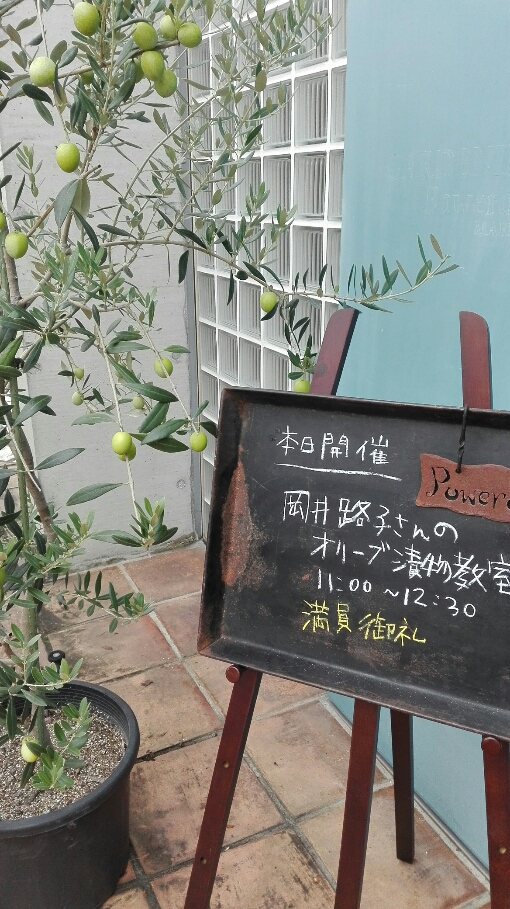 本日開催
岡井路子さんの
オリーブ漬物教室
11:00～12:30
満員御礼